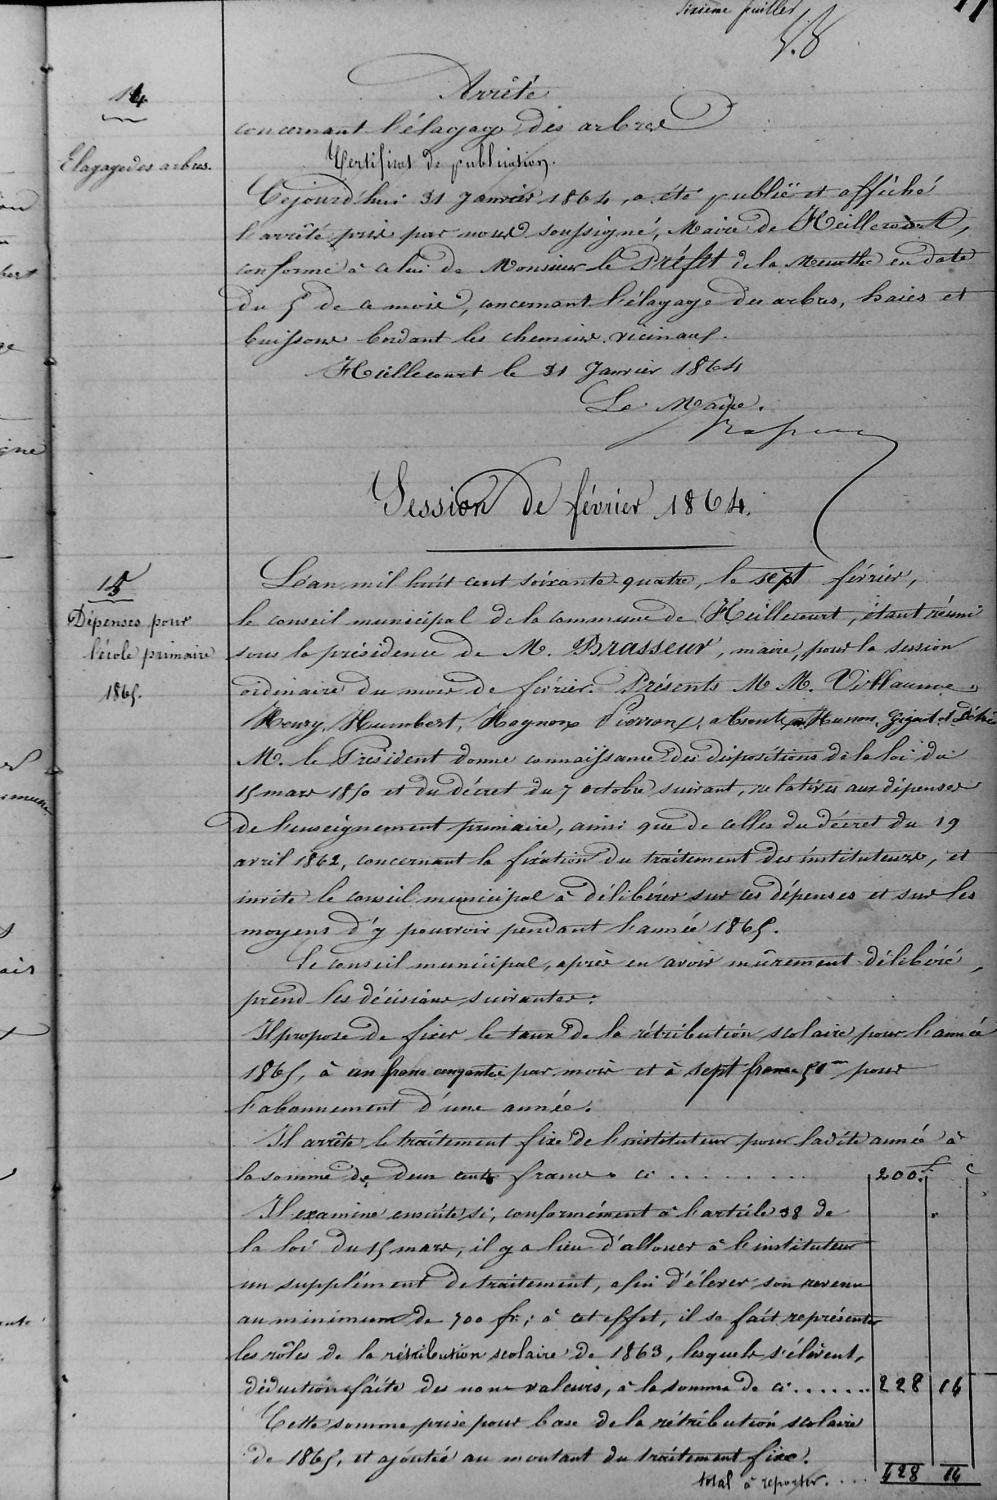 Sixième feuillet
11
14
Elagage des arbres.
Arrêté
concernant l'élagage des arbres
Certificat de publication.
Cejourd'hui 31 Janvier 1864, a été publié et affiché
l'arrêté pris par nous soussigné, Maire de Heillecourt,
conforme à celui de Monsieur le Préfet de la Meurthe en date
du 5 de ce mois, concernant l'élagage des arbres, haies et
buissons bordant les chemins vicinaux.
Heillecourt le 31 Janvier 1864
Le Maire.
Session de février 1864.
15
Dépenses pour
l'école primaire
1865.
L'an mil huit cent soixante quatre, le sept février,
le conseil municipal de la commune de Heillecourt, étant réuni
sous la présidence de M. Brasseur, maire, pour la session
ordinaire du mois de février. Présents M M. Villaume,
Henry, Humbert, Hognon, Pierron, absents Husson, Gigout et
M. le Président donne connaissance des dispositions de la loi du
15 mars 1850 et du décret du 7 octobre suivant, relatives aux dépenses
de l'enseignement primaire, ainsi que de celles du décret du 19
avril 1862, concernant la fixation du traitement des instituteurs, et
invite le conseil municipal à délibérer sur ces dépenses et sur les
moyens d'y pourvoir pendant l'année 1865.
Le conseil municipal, après en avoir mûrement délibéré,
prend les décisions suivantes:
Il propose de fixer le taux de la rétribution scolaire pour l'année
1865, à un franc cinquante par mois et à sept francs 50 pour
l'abonnement d'une année.
Il arrête le traitement fixe de l'instituteur pour ladite année à
la somme de deux cents francs ci ........ 200 f c
Il examine ensuite si, conformément à l'article 38 de
la loi du 15 mars, il y a lieu d'allouer à l'instituteur
un supplément de traitement, afin d'élever son revenu
au minimum de 700 fr; à cet effet, il se fait représenter
les rôles de la rétribution scolaire de 1863, lesquels s'élèvent,
déduction faite des non valeurs, à la somme de ci ...... 228 16
Cette somme prise pour base de la rétribution scolaire
de 1865, et ajoutée au montant du traitement fixe.
total à reporter .... 428 16